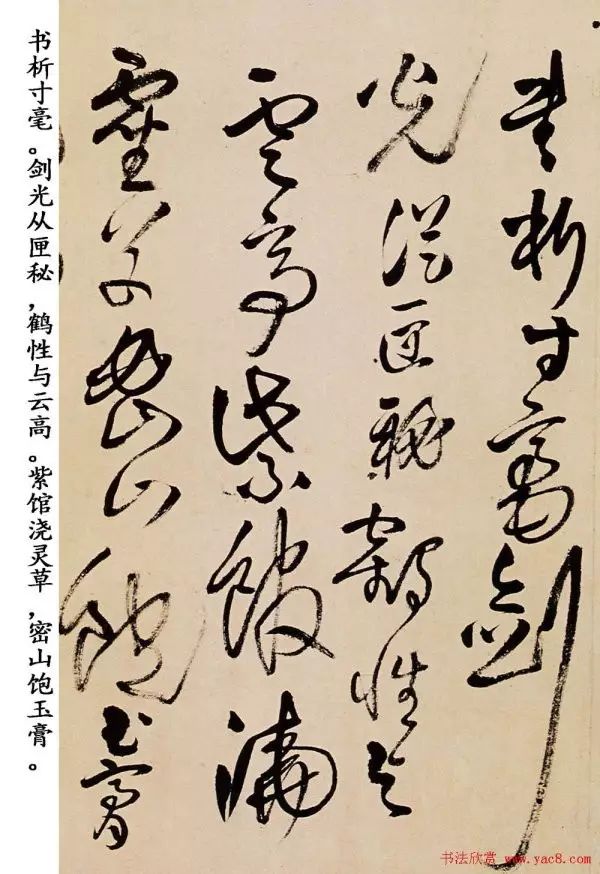 書析寸毫劍
光從匣秘鶴性与
雲高紫館澆
靈草密山飽玉膏
书析寸毫。剑光从匣秘，鹤性与云高。紫馆浇灵草，密山饱玉膏。
书法欣赏 www.yac8.com